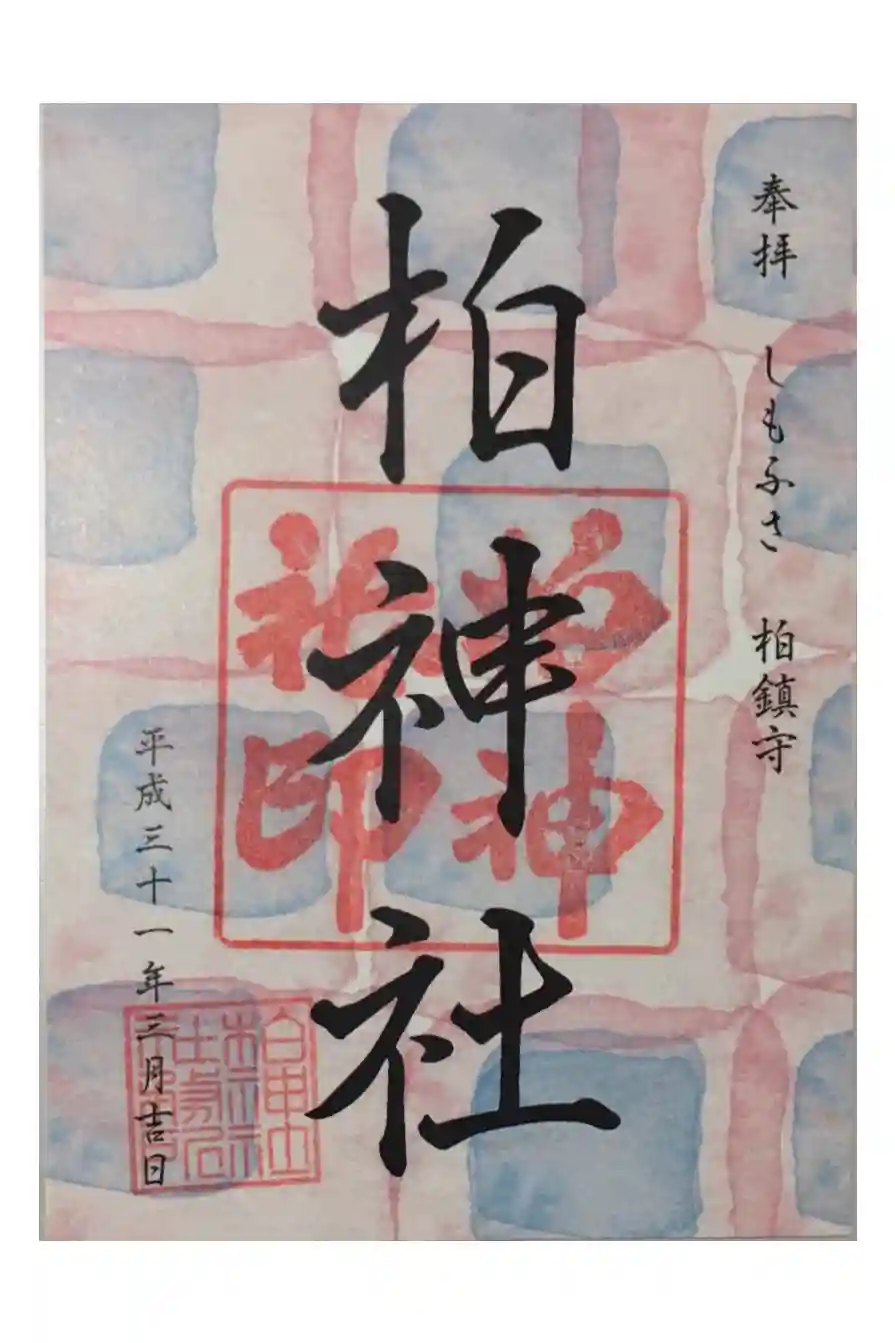 奉拝
しもふさ 柏鎮守
柏神社
柏神
社印
平成三十一年三月吉日